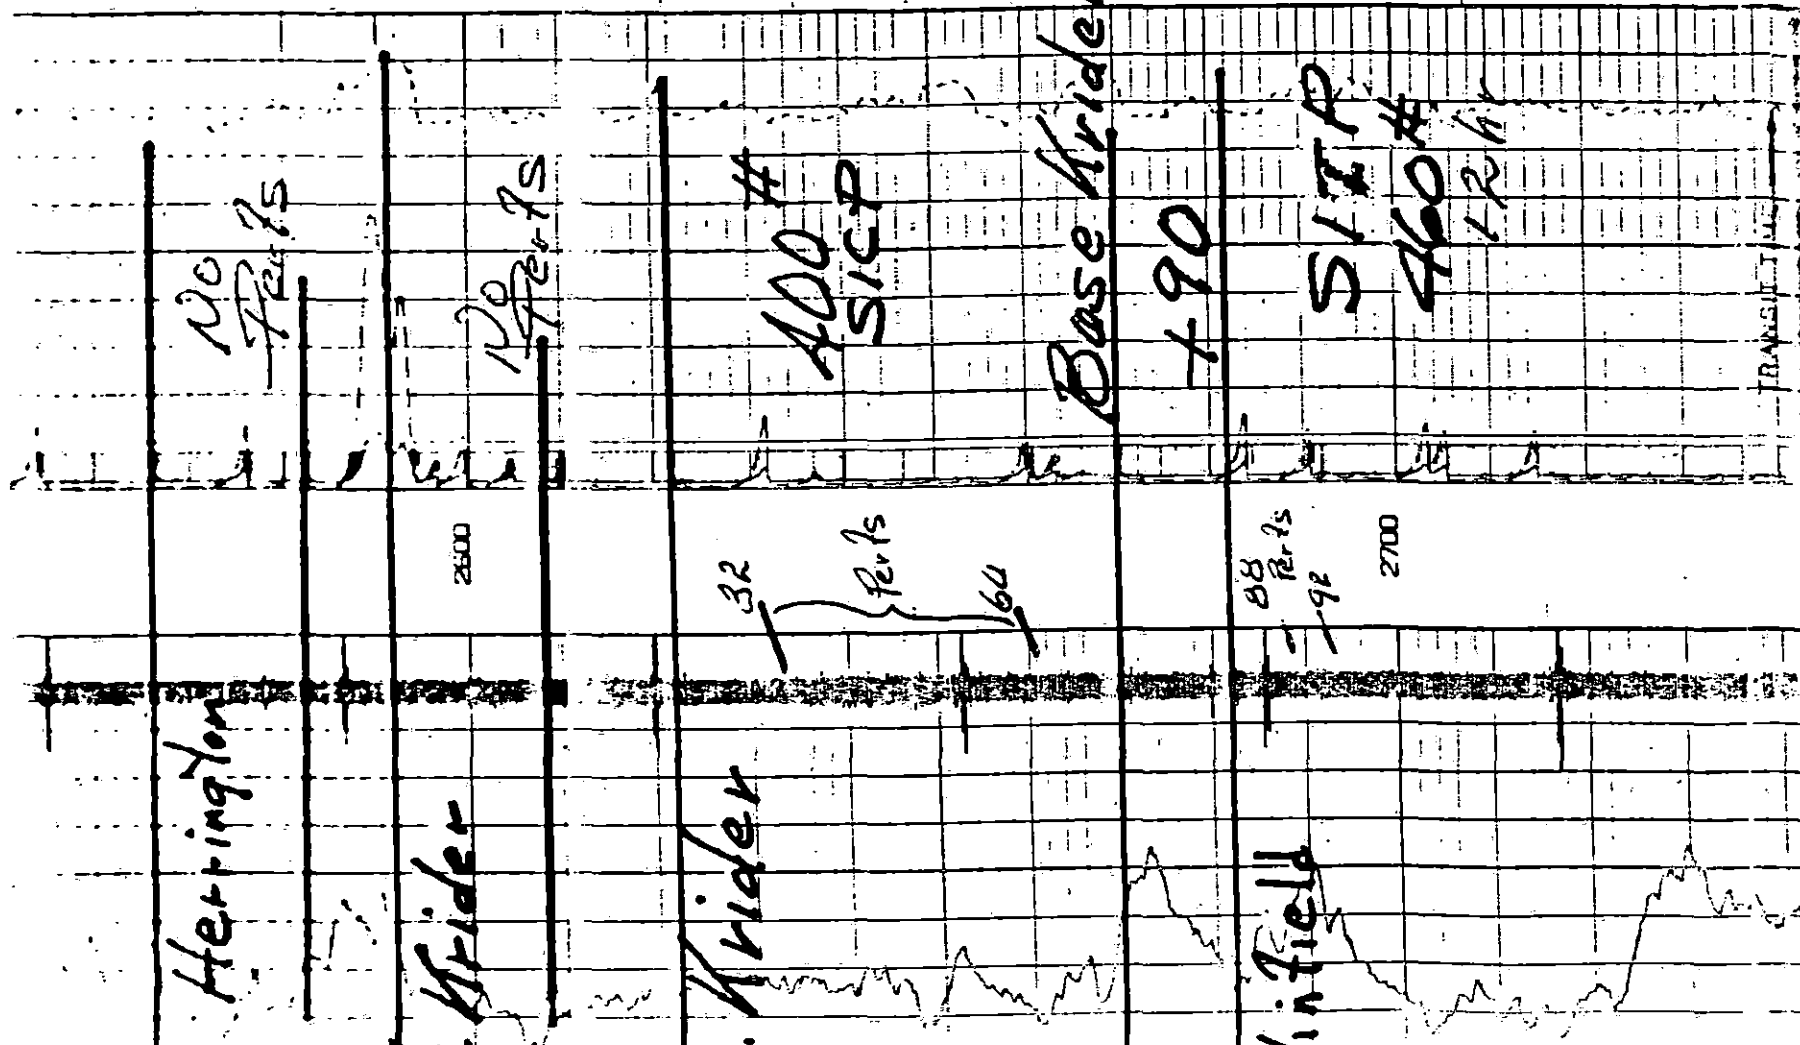 No
Perfs
No
Perfs
400 #
SICP
Base Krider
+90
SIIP
460 #
12 hr
2600
32
Perfs
64
88
Perfs
92
2700
Herrington
Krider
Krider